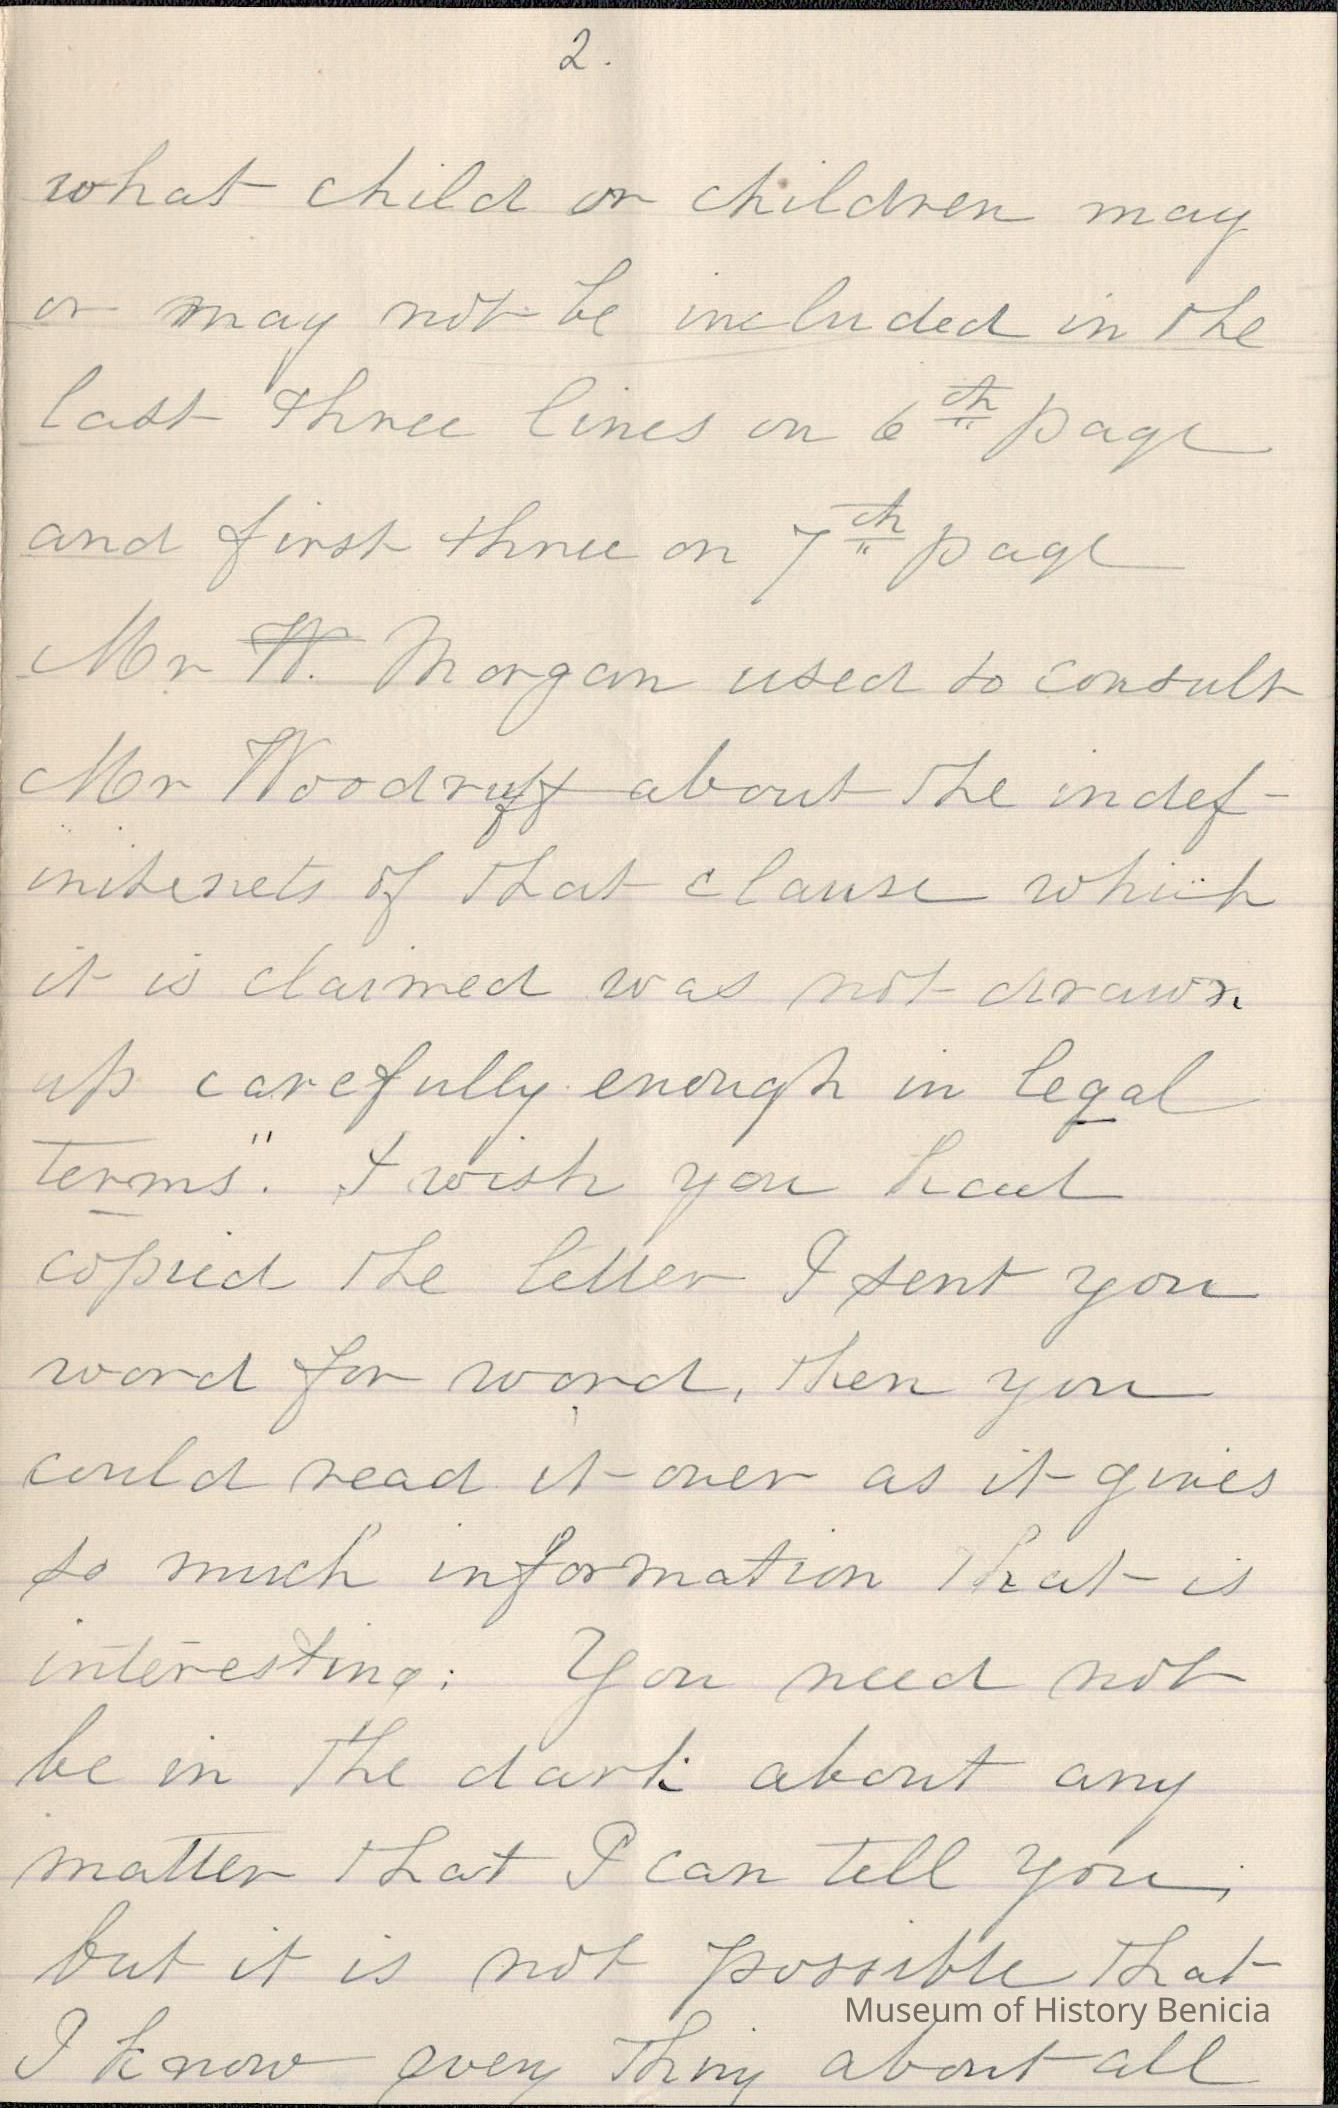 2.
what child or children may
or may not be included in the
last three lines on 6th page
and first three on 7th page
Mr W. Morgan used to consult
Mr Woodruff about the indef-
initenets of that clause which
it is claimed was not drawn
up carefully enough in legal
terms". I wish you had
copied the letter I sent you
word for word, then you
could read it over as it gives
so much information that is
interesting: You need not
be in the dark about any
matter that I can tell you,
but it is not possible that
Museum of History Benicia
I know every thing about all